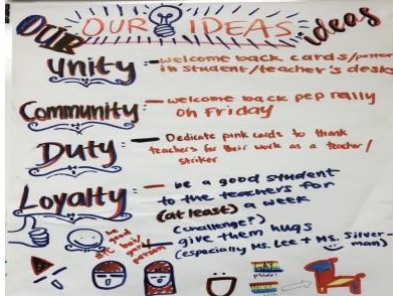 OUR OUR IDEAS ideas
Unity :- welcome back cards/poster
in student/teacher's desks
Community :- welcome back pep rally
on Friday
Duty :- Dedicate pink cards to thank
teachers for their work as a teacher/
striker
Loyalty :- be a good student
to the teachers for
(at least) a week
(challenge?)
- give them hugs
(especially Ms. Lee + Ms. Silver-
man)